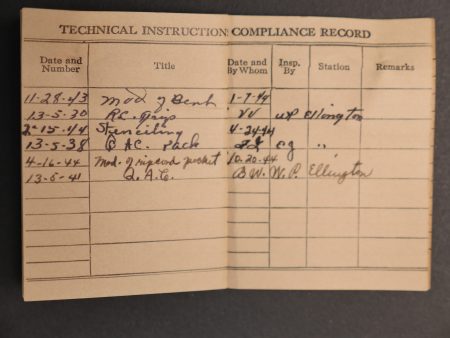 TECHNICAL INSTRUCTION COMPLIANCE RECORD
Date and Number Title Date and By Whom Insp. By Station Remarks
11-28-43 Mod of 1-7-44
13-5-30 R.C. WP Ellington
2-15-44 Stenciling 4-24-44
13-5-38 Pack eg "
4-16-44 Mod. of ripcord pocket 10-20-44
13-5-41 Q.A.C. B.W. W.P. Ellington